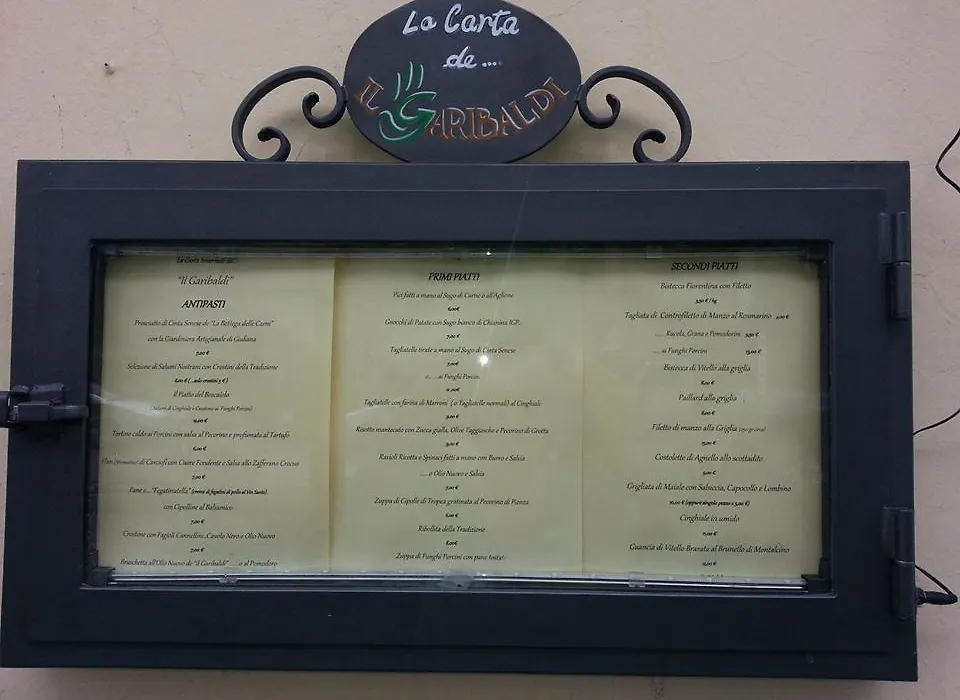 La Carta
de....
IL GARIBALDI
"Il Garibaldi"
ANTIPASTI
Prosciutto di Cinta Senese de "La Bottega delle Carni"
con la Giardiniera Artigianale di Giuliana
7,00 €
Selezione di Salumi Nostrani con Crostini della Tradizione
8,00 € (...solo crostini 5 €)
il Piatto del Boscaiolo
(Salumi di Cinghiale e Crostone ai Funghi Porcini)
Tortino caldo ai Porcini con salsa al Pecorino e profumata al Tartufo
6,00 €
di Carciofi con Cuore Fondente e Salsa allo Zafferano Crocus
7,00 €
Pane e... "Fegatinatella" (crema di fegatini di pollo al Vin Santo)
con Cipolline al Balsamico
7,00 €
Crostone con Fagioli Cannellini, Cavolo Nero e Olio Nuovo
7,00 €
Bruschetta all'Olio Nuovo de "il Garibaldi" ......o al Pomodoro
PRIMI PIATTI
Pici fatti a mano al Sugo di Carne o all'Aglione
6,00€
Gnocchi di Patate con Sugo bianco di Chianina IGP.
7,00 €
Tagliatelle tirate a mano al Sugo di Cinta Senese
7,00€
o.......ai Funghi Porcini
Tagliatelle con farina di Marroni ( o Tagliatelle normali) al Cinghiale
9,00 €
Risotto mantecato con Zucca gialla, Olive Taggiasche e Pecorino di Grotta
9,00 €
Ravioli Ricotta e Spinaci fatti a mano con Burro e Salvia
.....o Olio Nuovo e Salvia
7,00 €
Zuppa di Cipolle di Tropea gratinata al Pecorino di Pienza
6,00 €
Ribollita della Tradizione
8,00€
Zuppa di Funghi Porcini con pane tostato
SECONDI PIATTI
Bistecca Fiorentina con Filetto
3,50 € / hg
Tagliata di Controfiletto di Manzo al Rosmarino
.....Rucola, Grana e Pomodorini
.....ai Funghi Porcini 15,00 €
Bistecca di Vitello alla griglia
8,00 €
Paillard alla griglia
6,00 €
Filetto di manzo alla Griglia
15,00 €
Costolette di Agnello allo scottadito
9,00 €
Grigliata di Maiale con Salsiccia, Capocollo e Lombino
10,00 € (oppure singolo pezzo a 5,00 €)
Cinghiale in umido
11,00 €
Guancia di Vitello Brasata al Brunello di Montalcino